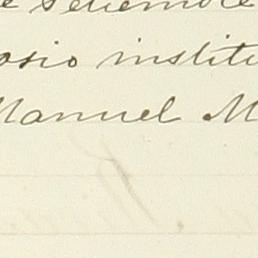 e setiembre
osio institu
Manuel M